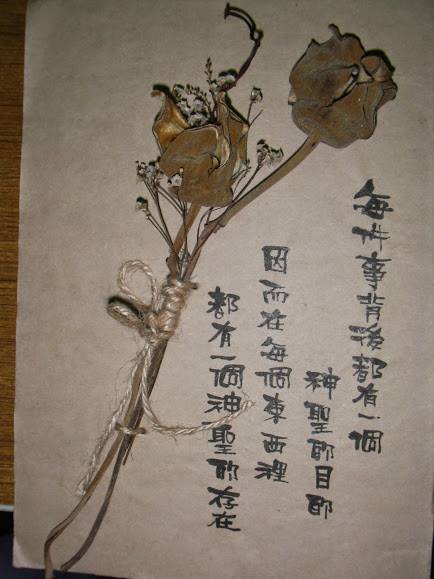 每件事背後都有一個
神聖的目的
因而在每個東西裡
都有一個神聖的存在